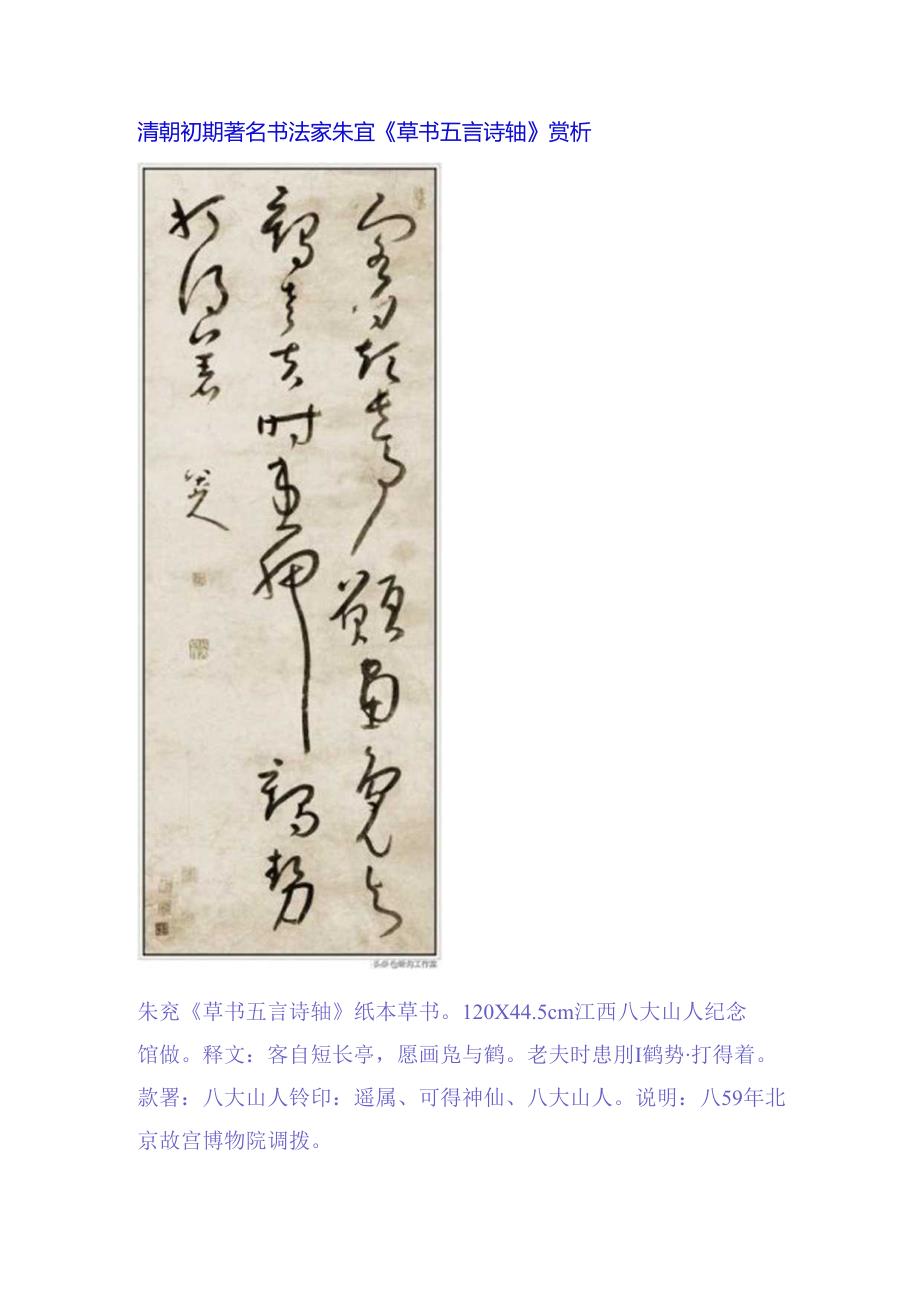 清朝初期著名书法家朱宜《草书五言诗轴》赏析
客問短長亭願畫鳧與
鶴老夫時患胛鶴勢
打得着
八大山人
朱兖《草书五言诗轴》纸本草书。120X44.5cm江西八大山人纪念
馆做。释文：客自短长亭，愿画凫与鹤。老夫时患刖I鹤势·打得着。
款署：八大山人铃印：遥属、可得神仙、八大山人。说明：八59年北
京故宫博物院调拨。